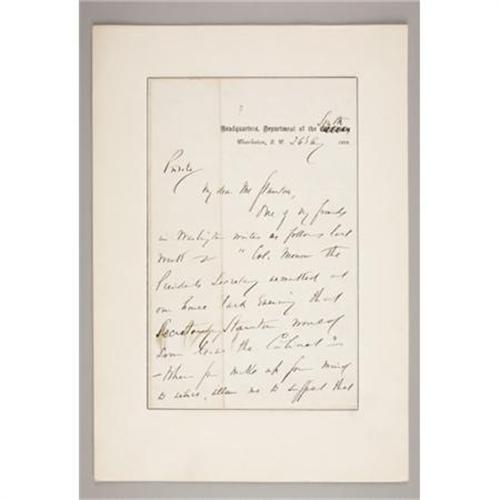 South
Headquarters, Department of the
Charleston, S. C. 26
Private
My dear Mr Stanton,
One of my friends
in Washington writes as follows last
"Col. the
Presidents Secretary remarked at
our house last evening that
Secretary Stanton would
soon leave the Cabinet"
- When you make up your mind
to retire, allow me to suggest that